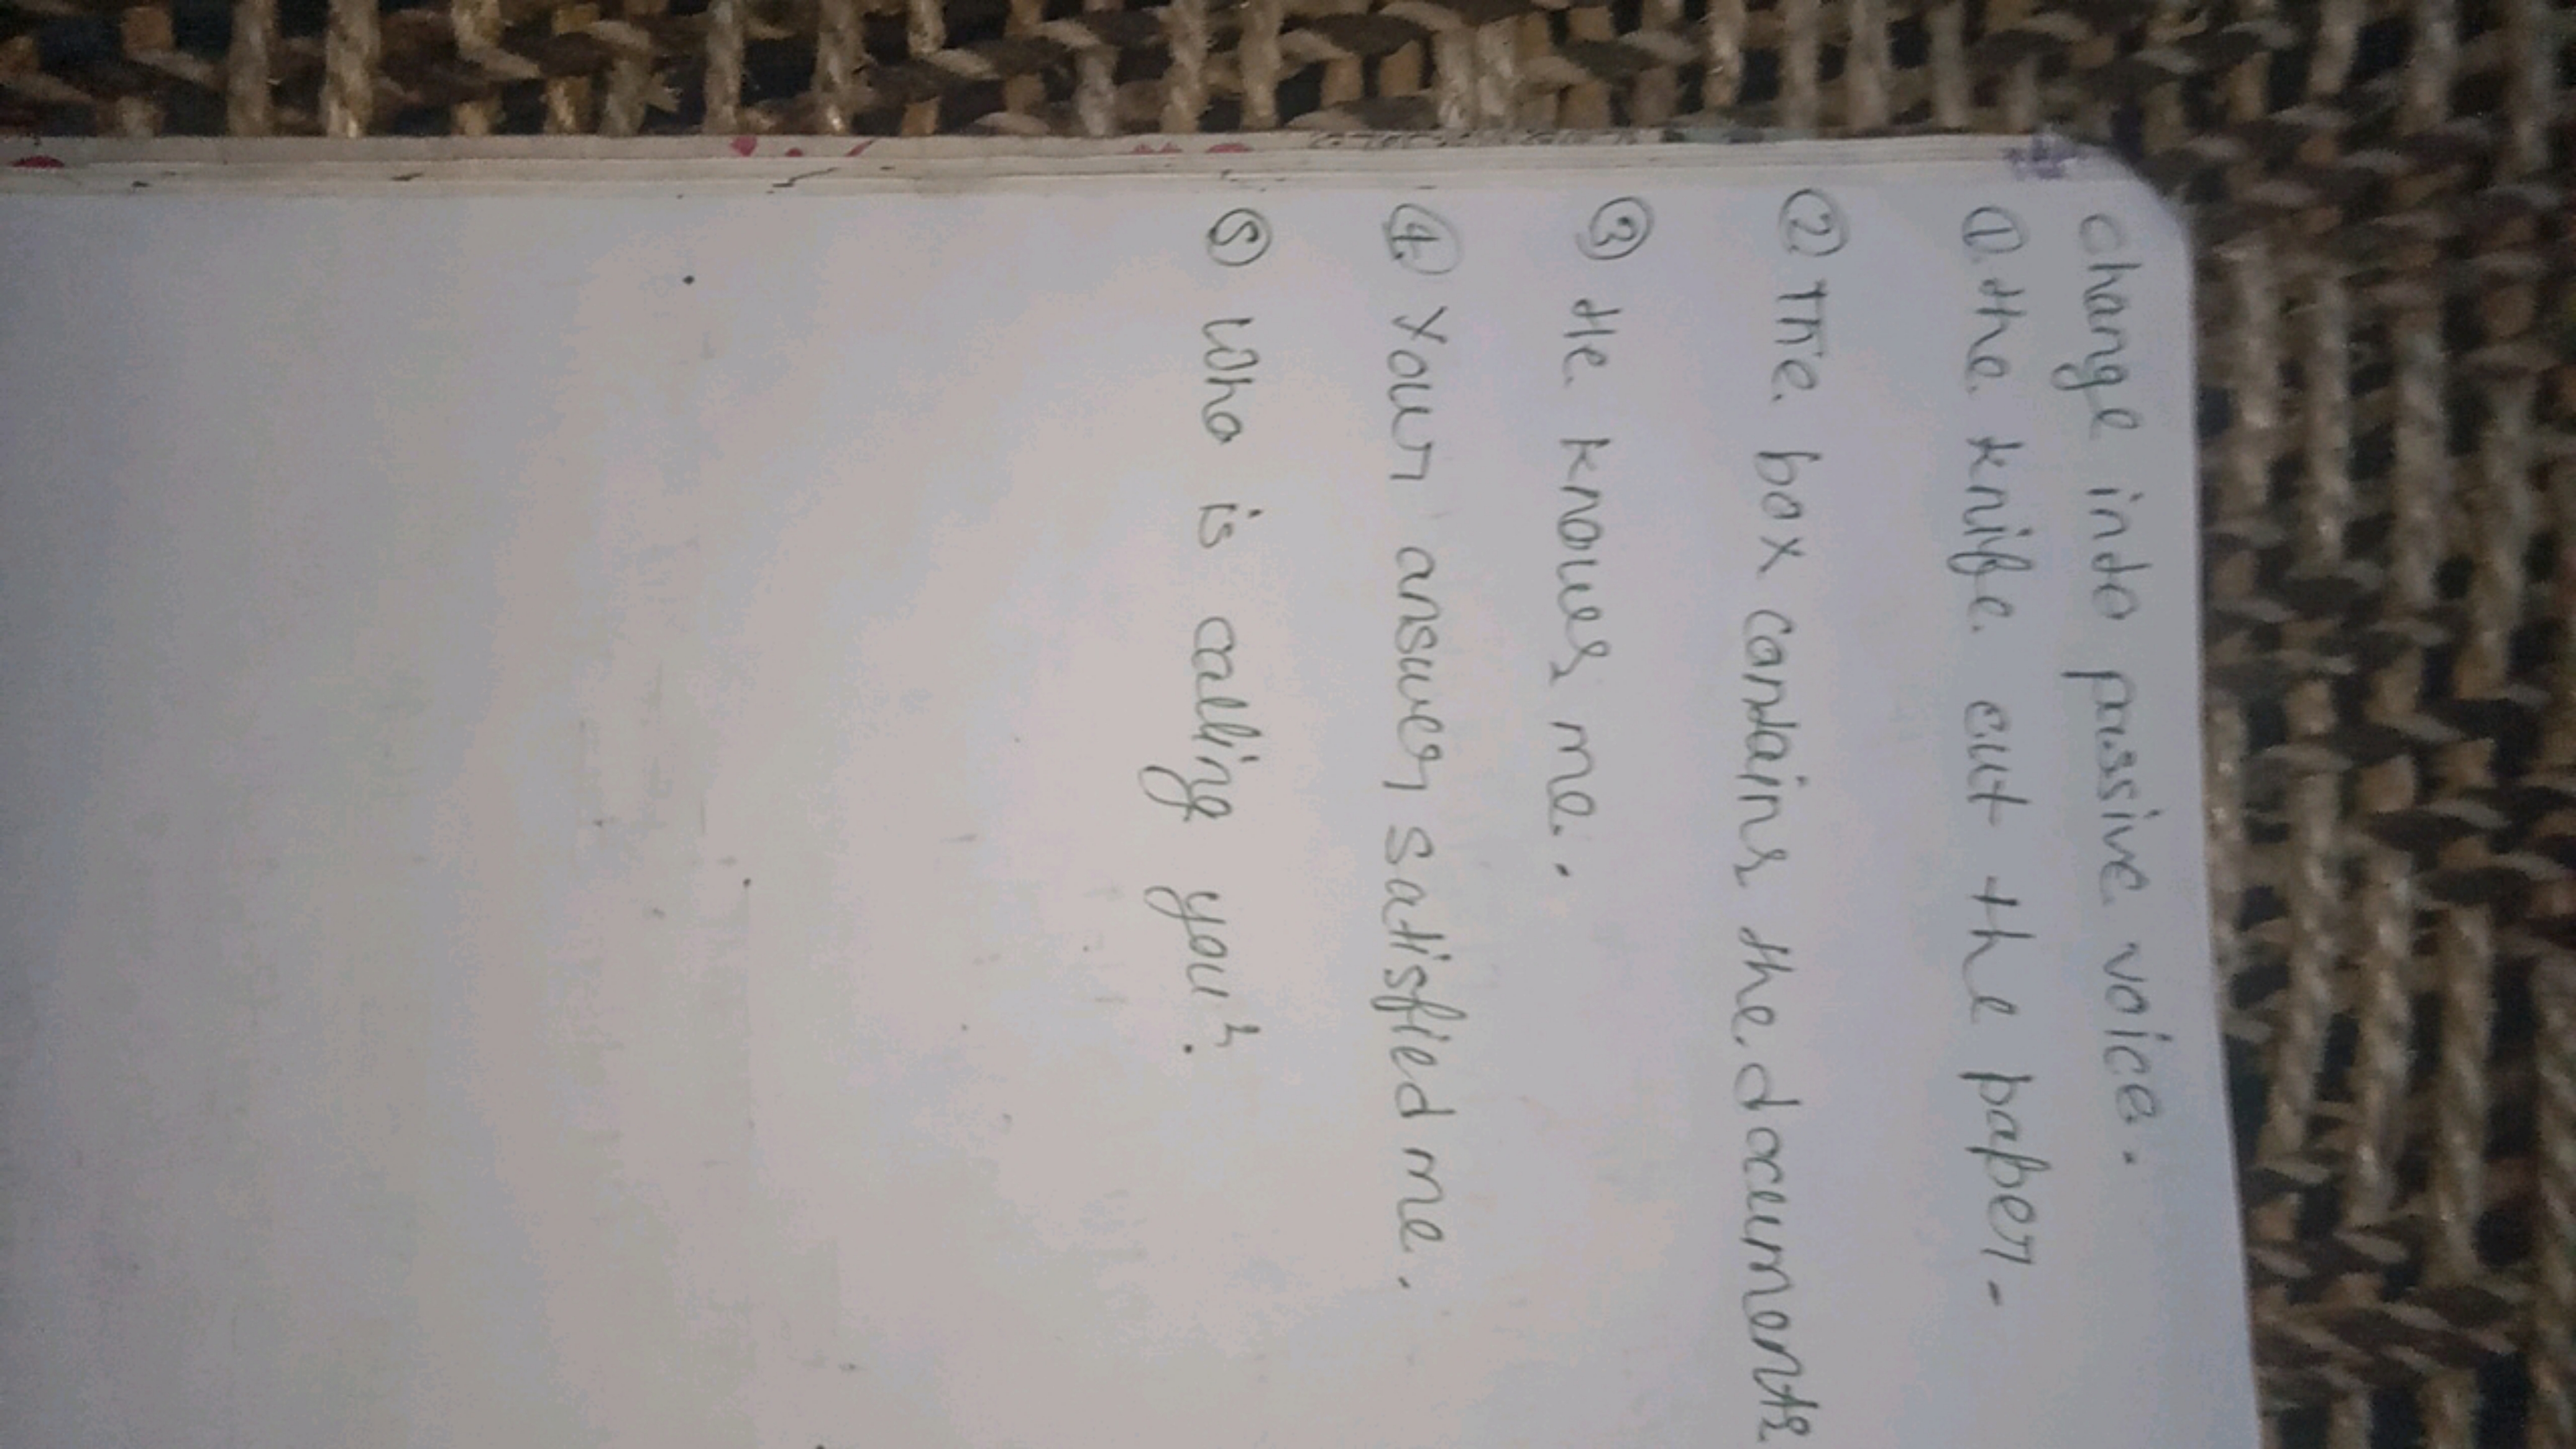 change into passive voice.
① the knife cut the paper.
② The box contains the documents
③ He knows me.
④ Your answer satisfied me.
⑤ Who is calling you?